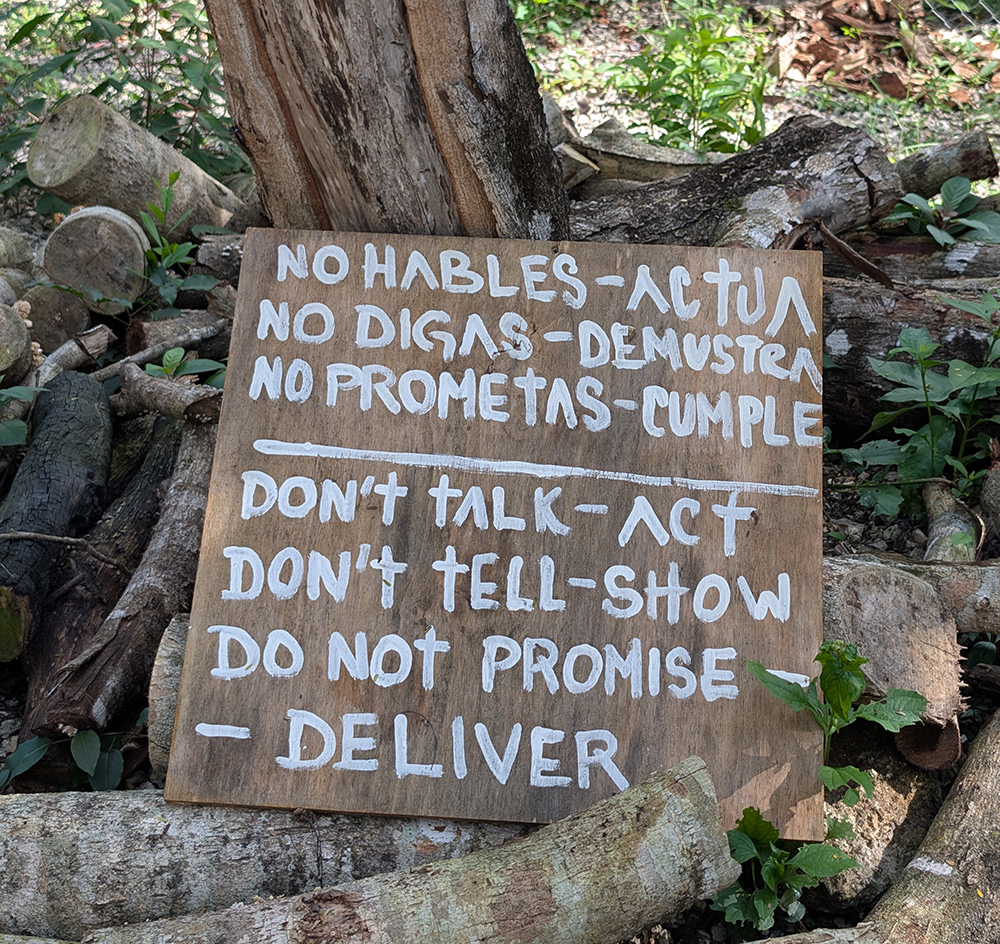 NO HABLES - ACTUA
NO DIGAS - DEMUSTRA
NO PROMETAS - CUMPLE
DON'T TALK - ACT
DON'T TELL - SHOW
DO NOT PROMISE -
- DELIVER